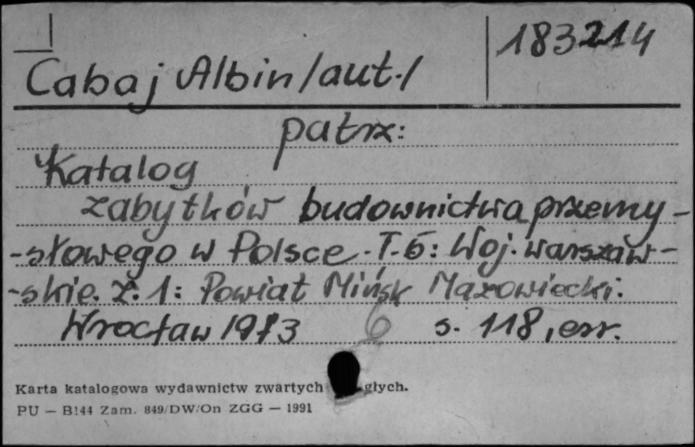 183214
Cabaj Albin /aut./
patrz:
Katalog
zabytków budownictwa przemy-
-słowego w Polsce. T. 6: Woj. warszaw-
-skie. z. 1: Powiat Mińsk Mazowiecki.
Wrocław 1973 6 s. 118, err.
Karta katalogowa wydawnictw zwartych głych.
PU — B144 Zam. 849/DW/On ZGG — 1991